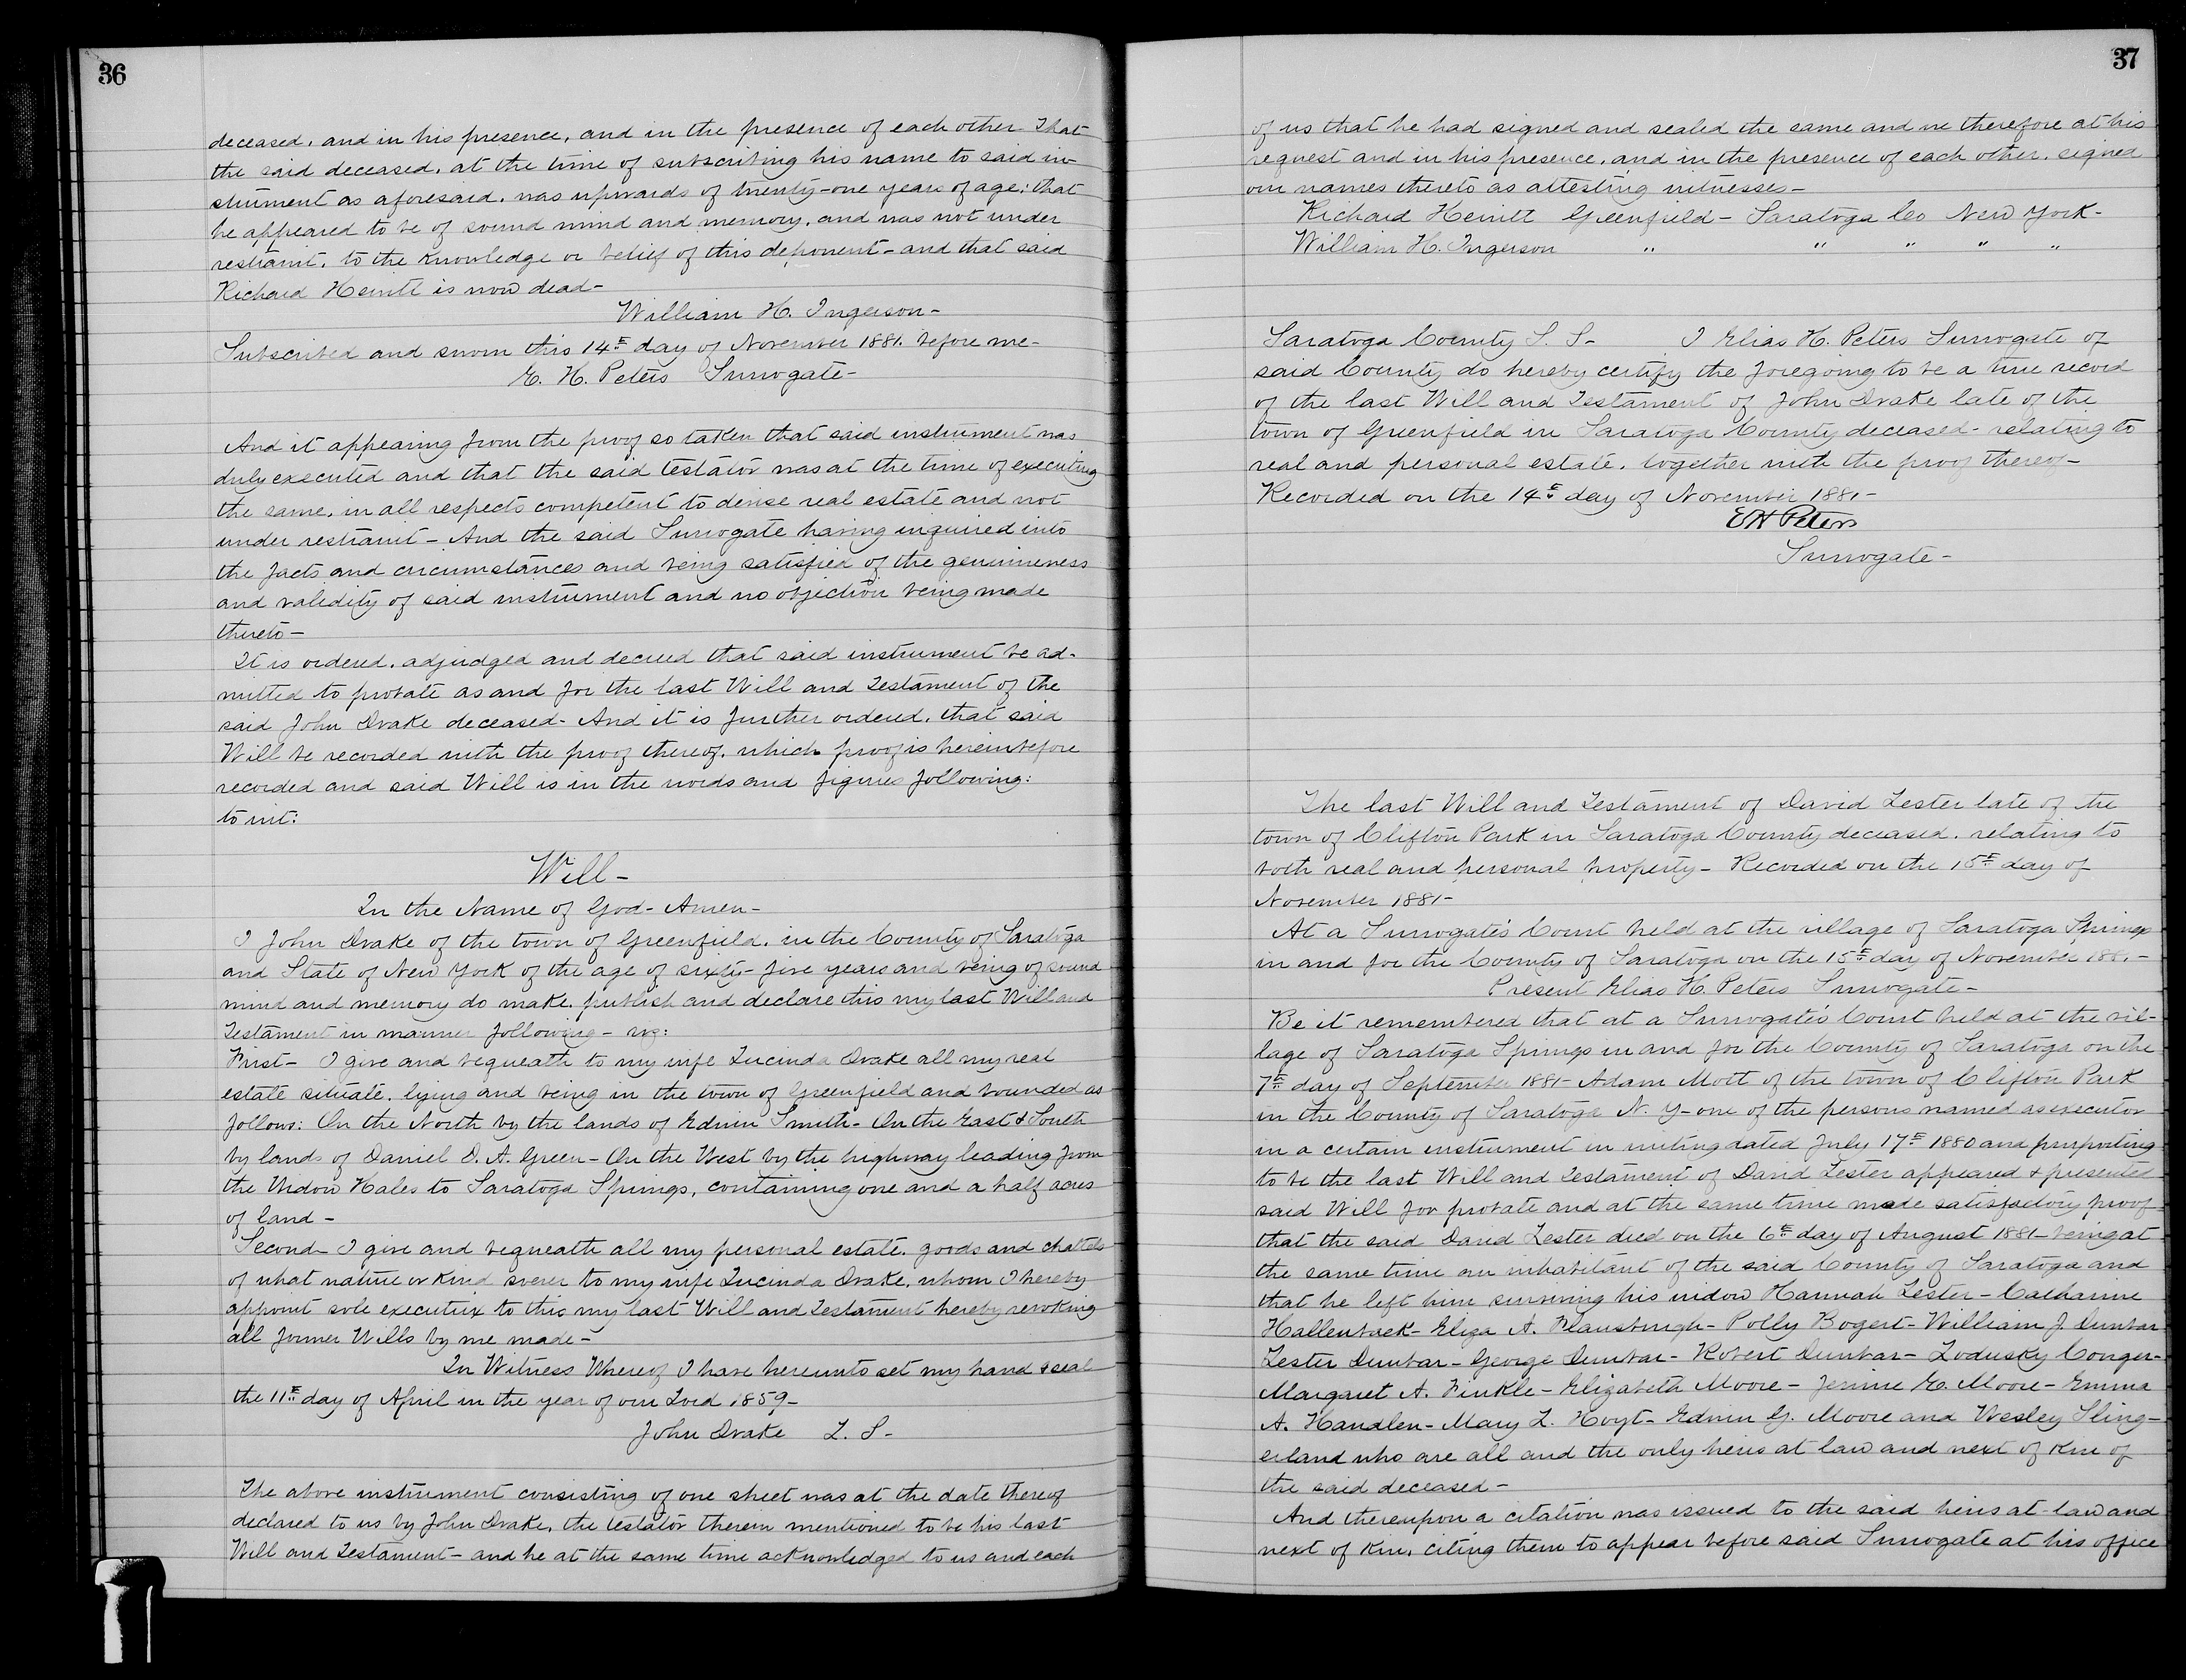 36
deceased, and in his presence, and in the presence of each other That
the said deceased, at the time of subscribing his name to said in-
strument as aforesaid, was upwards of twenty-one years of age; that
he appeared to be of sound mind and memory, and was not under
restraint, to the knowledge or belief of this deponent - and that said
Richard Hewitt is now dead -
William H. Ingerson -
Subscribed and sworn this 14th day of November 1881. before me -
E. H. Peters Surrogate -
And it appearing from the proof so taken that said instrument was
duly executed and that the said testator was at the time of executing
the same, in all respects competent to devise real estate and not
under restraint - And the said Surrogate having inquired into
the facts and circumstances and being satisfied of the genuineness
and validity of said instrument and no objection being made
thereto -
It is ordered, adjudged and decreed that said instrument be ad-
mitted to probate as and for the last Will and Testament of the
said John Drake deceased - And it is further ordered, that said
Will be recorded with the proof thereof, which proof is hereinbefore
recorded and said Will is in the words and figures following:
to wit:
Will -
In the Name of God - Amen -
I John Drake of the town of Greenfield, in the County of Saratoga
and State of New York of the age of sixty-five years and being of sound
mind and memory do make, publish and declare this my last Will and
Testament in manner following - viz:
First - I give and bequeath to my wife Lucinda Drake all my real
estate situate, lying and being in the town of Greenfield and bounded as
follows: On the North by the lands of Edwin Smith - On the East & South
by lands of Daniel D. A. Green - On the West by the highway leading from
the Widow Hales to Saratoga Springs, containing one and a half acres
of land -
Second - I give and bequeath all my personal estate, goods and chattels
of what nature or kind soever to my wife Lucinda Drake, whom I hereby
appoint sole executrix to this my last Will and Testament hereby revoking
all former Wills by me made -
In Witness Whereof I have hereunto set my hand & seal
the 11th day of April in the year of our Lord 1859 -
John Drake L. S. -
The above instrument consisting of one sheet was at the date thereof
declared to us by John Drake, the testator therein mentioned to be his last
Will and Testament - and he at the same time acknowledged to us and each
37
of us that he had signed and sealed the same and we therefore at his
request and in his presence, and in the presence of each other, signed
our names thereto as attesting witnesses -
Richard Hewitt Greenfield - Saratoga Co New York -
William H. Ingerson " " " " "
Saratoga County S. S - I Elias H. Peters Surrogate of
said County do hereby certify the foregoing to be a true record
of the last Will and Testament of John Drake late of the
town of Greenfield in Saratoga County deceased - relating to
real and personal estate, together with the proof thereof -
Recorded on the 14th day of November 1881 -
E H Peters
Surrogate -
The last Will and Testament of David Lester late of the
town of Clifton Park in Saratoga County deceased, relating to
both real and personal property - Recorded on the 15th day of
November 1881 -
At a Surrogate's Court held at the village of Saratoga Springs
in and for the County of Saratoga on the 15th day of November 1881 -
Present Elias H. Peters Surrogate -
Be it remembered that at a Surrogate's Court held at the vil-
lage of Saratoga Springs in and for the County of Saratoga on the
7th day of September 1881 - Adam Mott of the town of Clifton Park
in the County of Saratoga N. Y - one of the persons named as executor
in a certain instrument in writing dated July 17th 1880 and purporting
to be the last Will and Testament of David Lester appeared & presented
said Will for probate and at the same time made satisfactory proof
that the said David Lester died on the 6th day of August 1881 - being at
the same time an inhabitant of the said County of Saratoga and
that he left him surviving his widow Hannah Lester - Catharine
Hallenback - Eliza A. Flansburgh - Polly Bogert - William J. Dunbar
Lester Dunbar - George Dunbar - Robert Dunbar - Lodusky Conger -
Margaret A. Finkle - Elizabeth Moore - Jennie E. Moore - Emma
A. Handlen - Mary L. Hoyt - Edwin G. Moore and Wesley Sling-
erland who are all and the only heirs at law and next of kin of
the said deceased -
And thereupon a citation was issued to the said heirs at law and
next of kin, citing them to appear before said Surrogate at his office